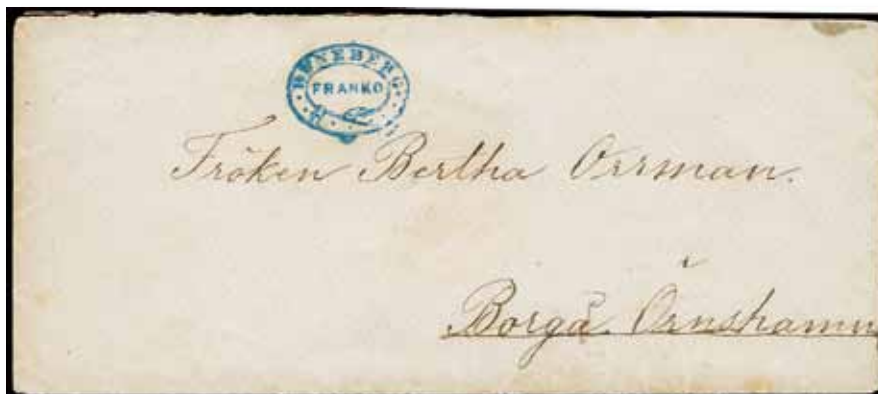 RUNEBERG
FRANKO
Fröken Bertha Orrman.
Borgå Örnshamn